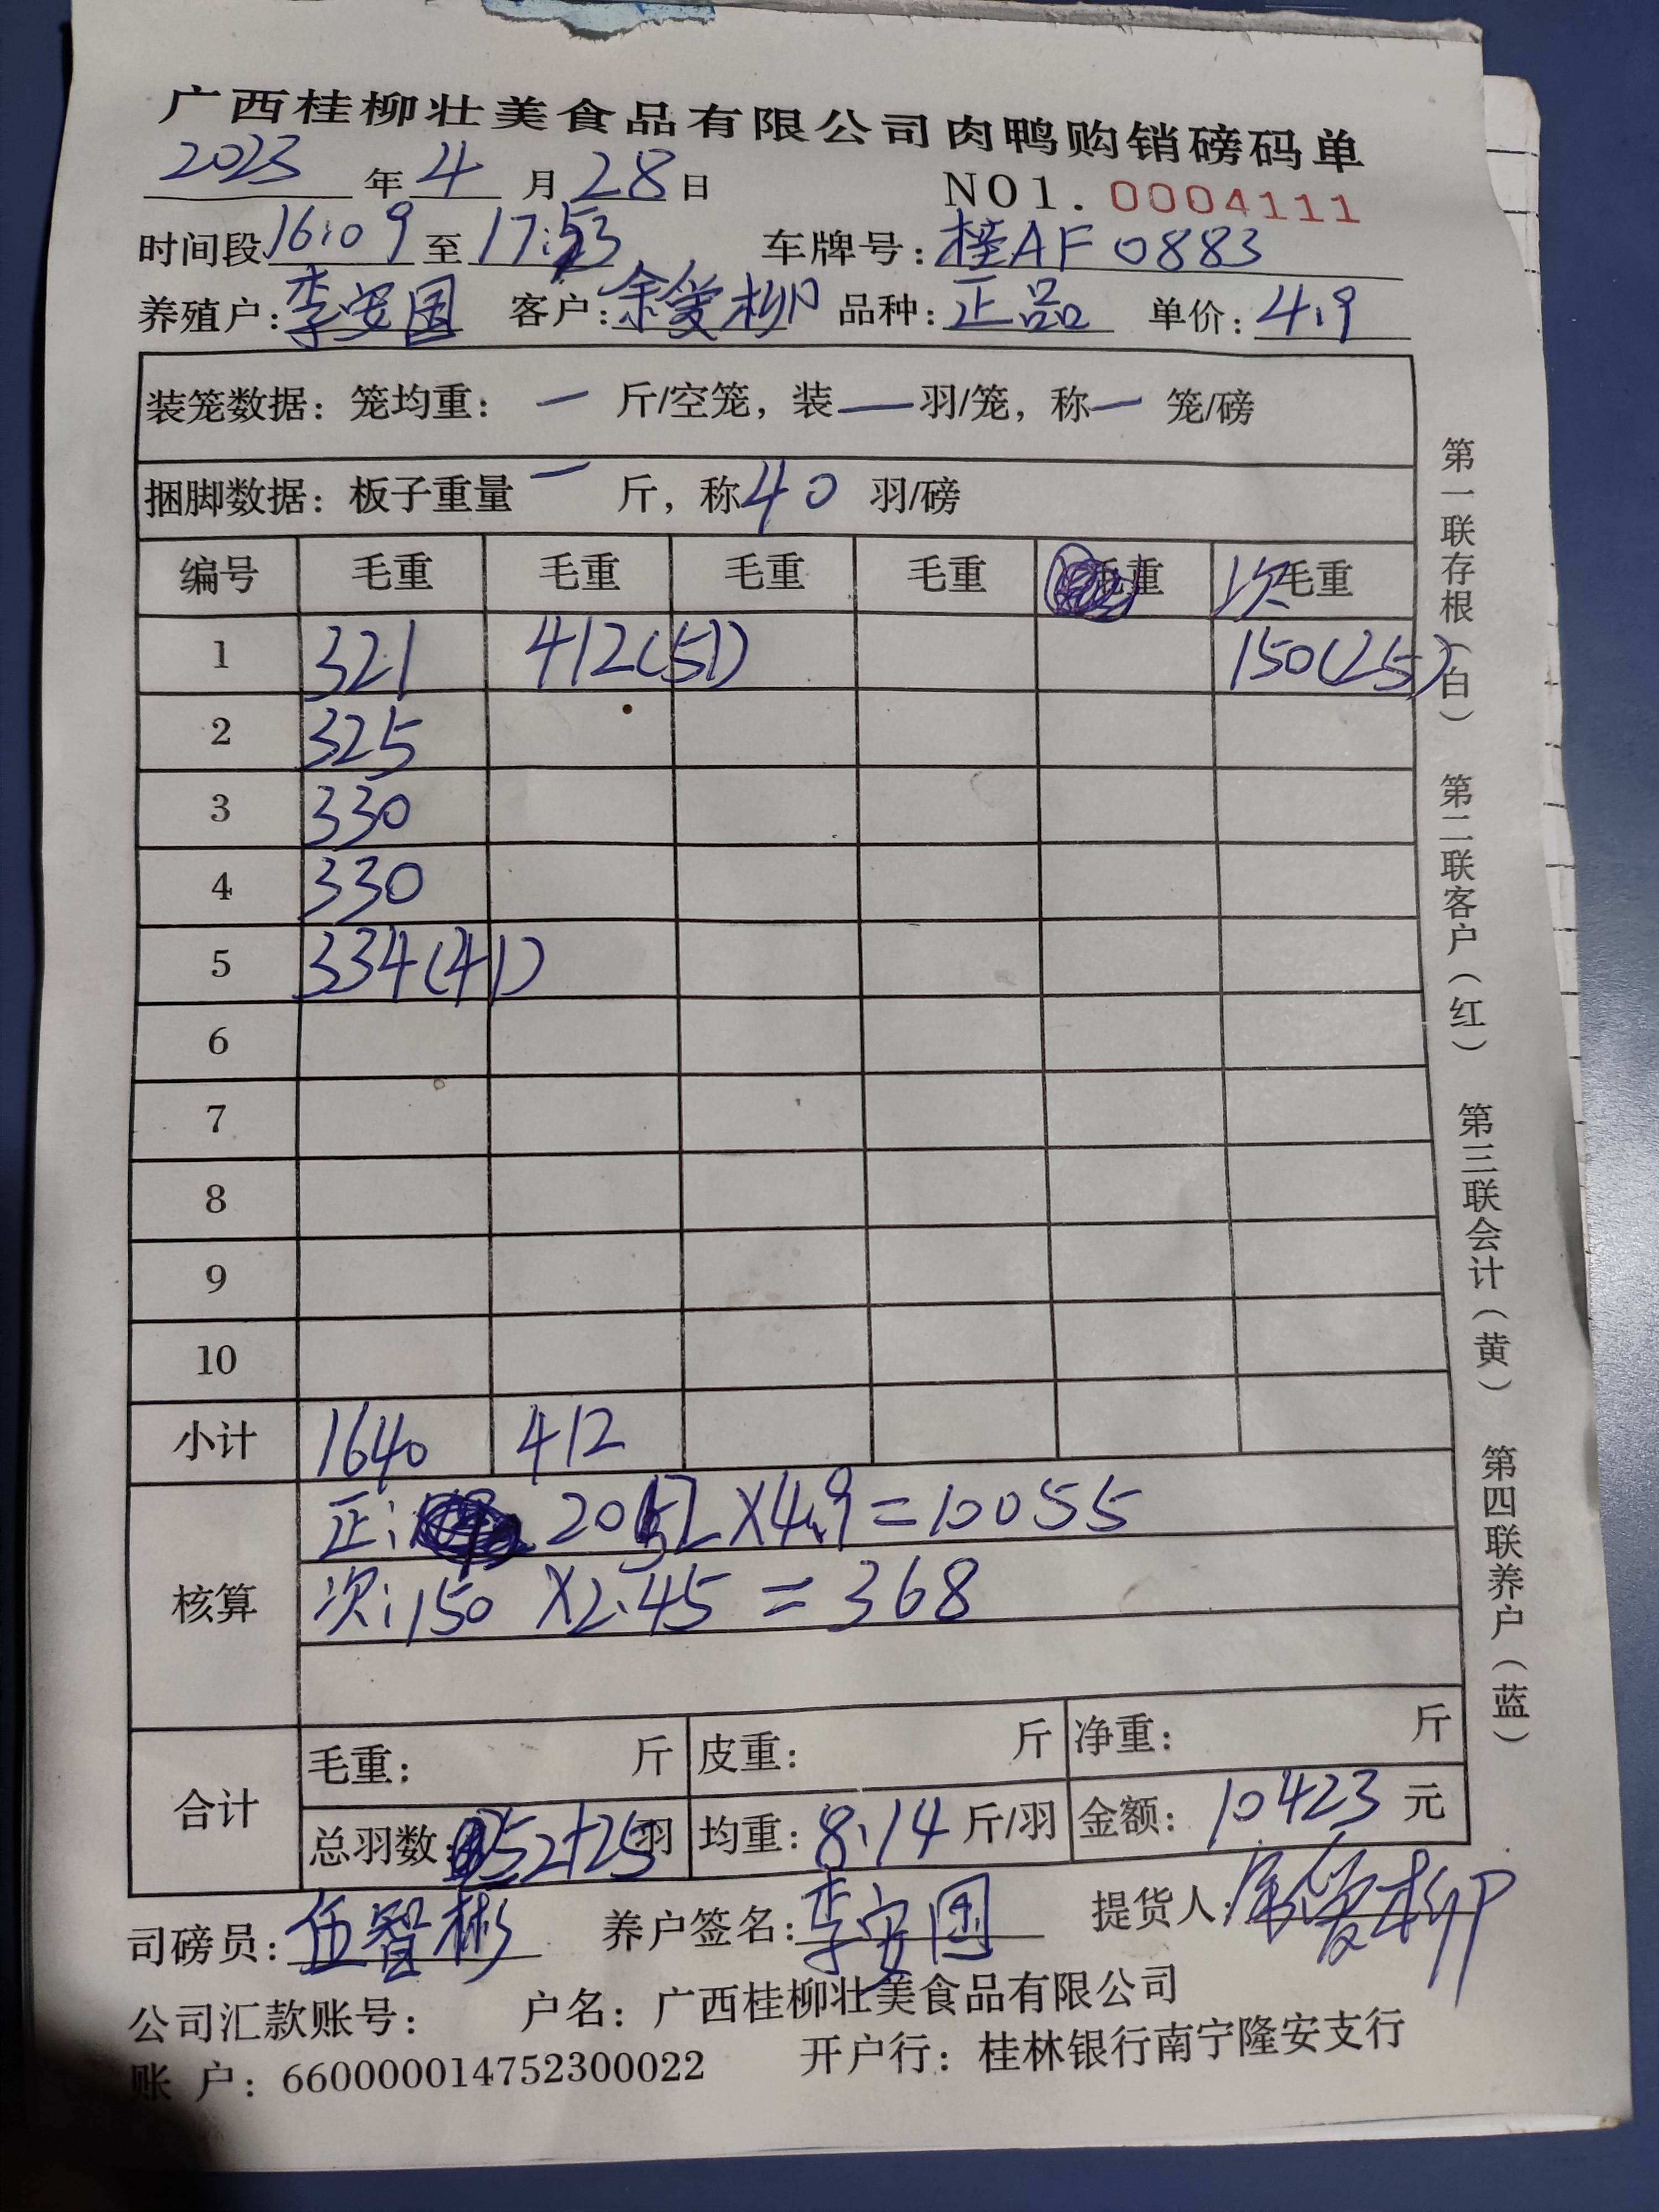 广西桂柳壮美食品有限公司肉鸭购销磅码单
2023年4月28日 NO1.0004111
时间段16:09至17:53 车牌号:桂AF0883
养殖户:李安国 客户:余爱柳 品种:正品 单价:4.9
装笼数据:笼均重:一斤/空笼,装一羽/笼,称一笼/磅
捆脚数据:板子重量一斤,称40羽/磅
编号 毛重 毛重 毛重 毛重 重 次毛重
1 321 412(51) 150(25)
2 325
3 330
4 330
5 334(41)
6
7
8
9
10
小计 1640 412
核算 正: 2052×4.9=10055
次:150×2.45=368
合计 毛重: 斤 皮重: 斤 净重: 斤
总羽数:252+25羽 均重:8.14斤/羽 金额:10423元
司磅员:伍智彬 养户签名:李安国 提货人:余爱柳
公司汇款账号: 户名:广西桂柳壮美食品有限公司
账 户:660000014752300022 开户行:桂林银行南宁隆安支行
第一联存根(白) 第二联客户(红) 第三联会计(黄) 第四联养户(蓝)